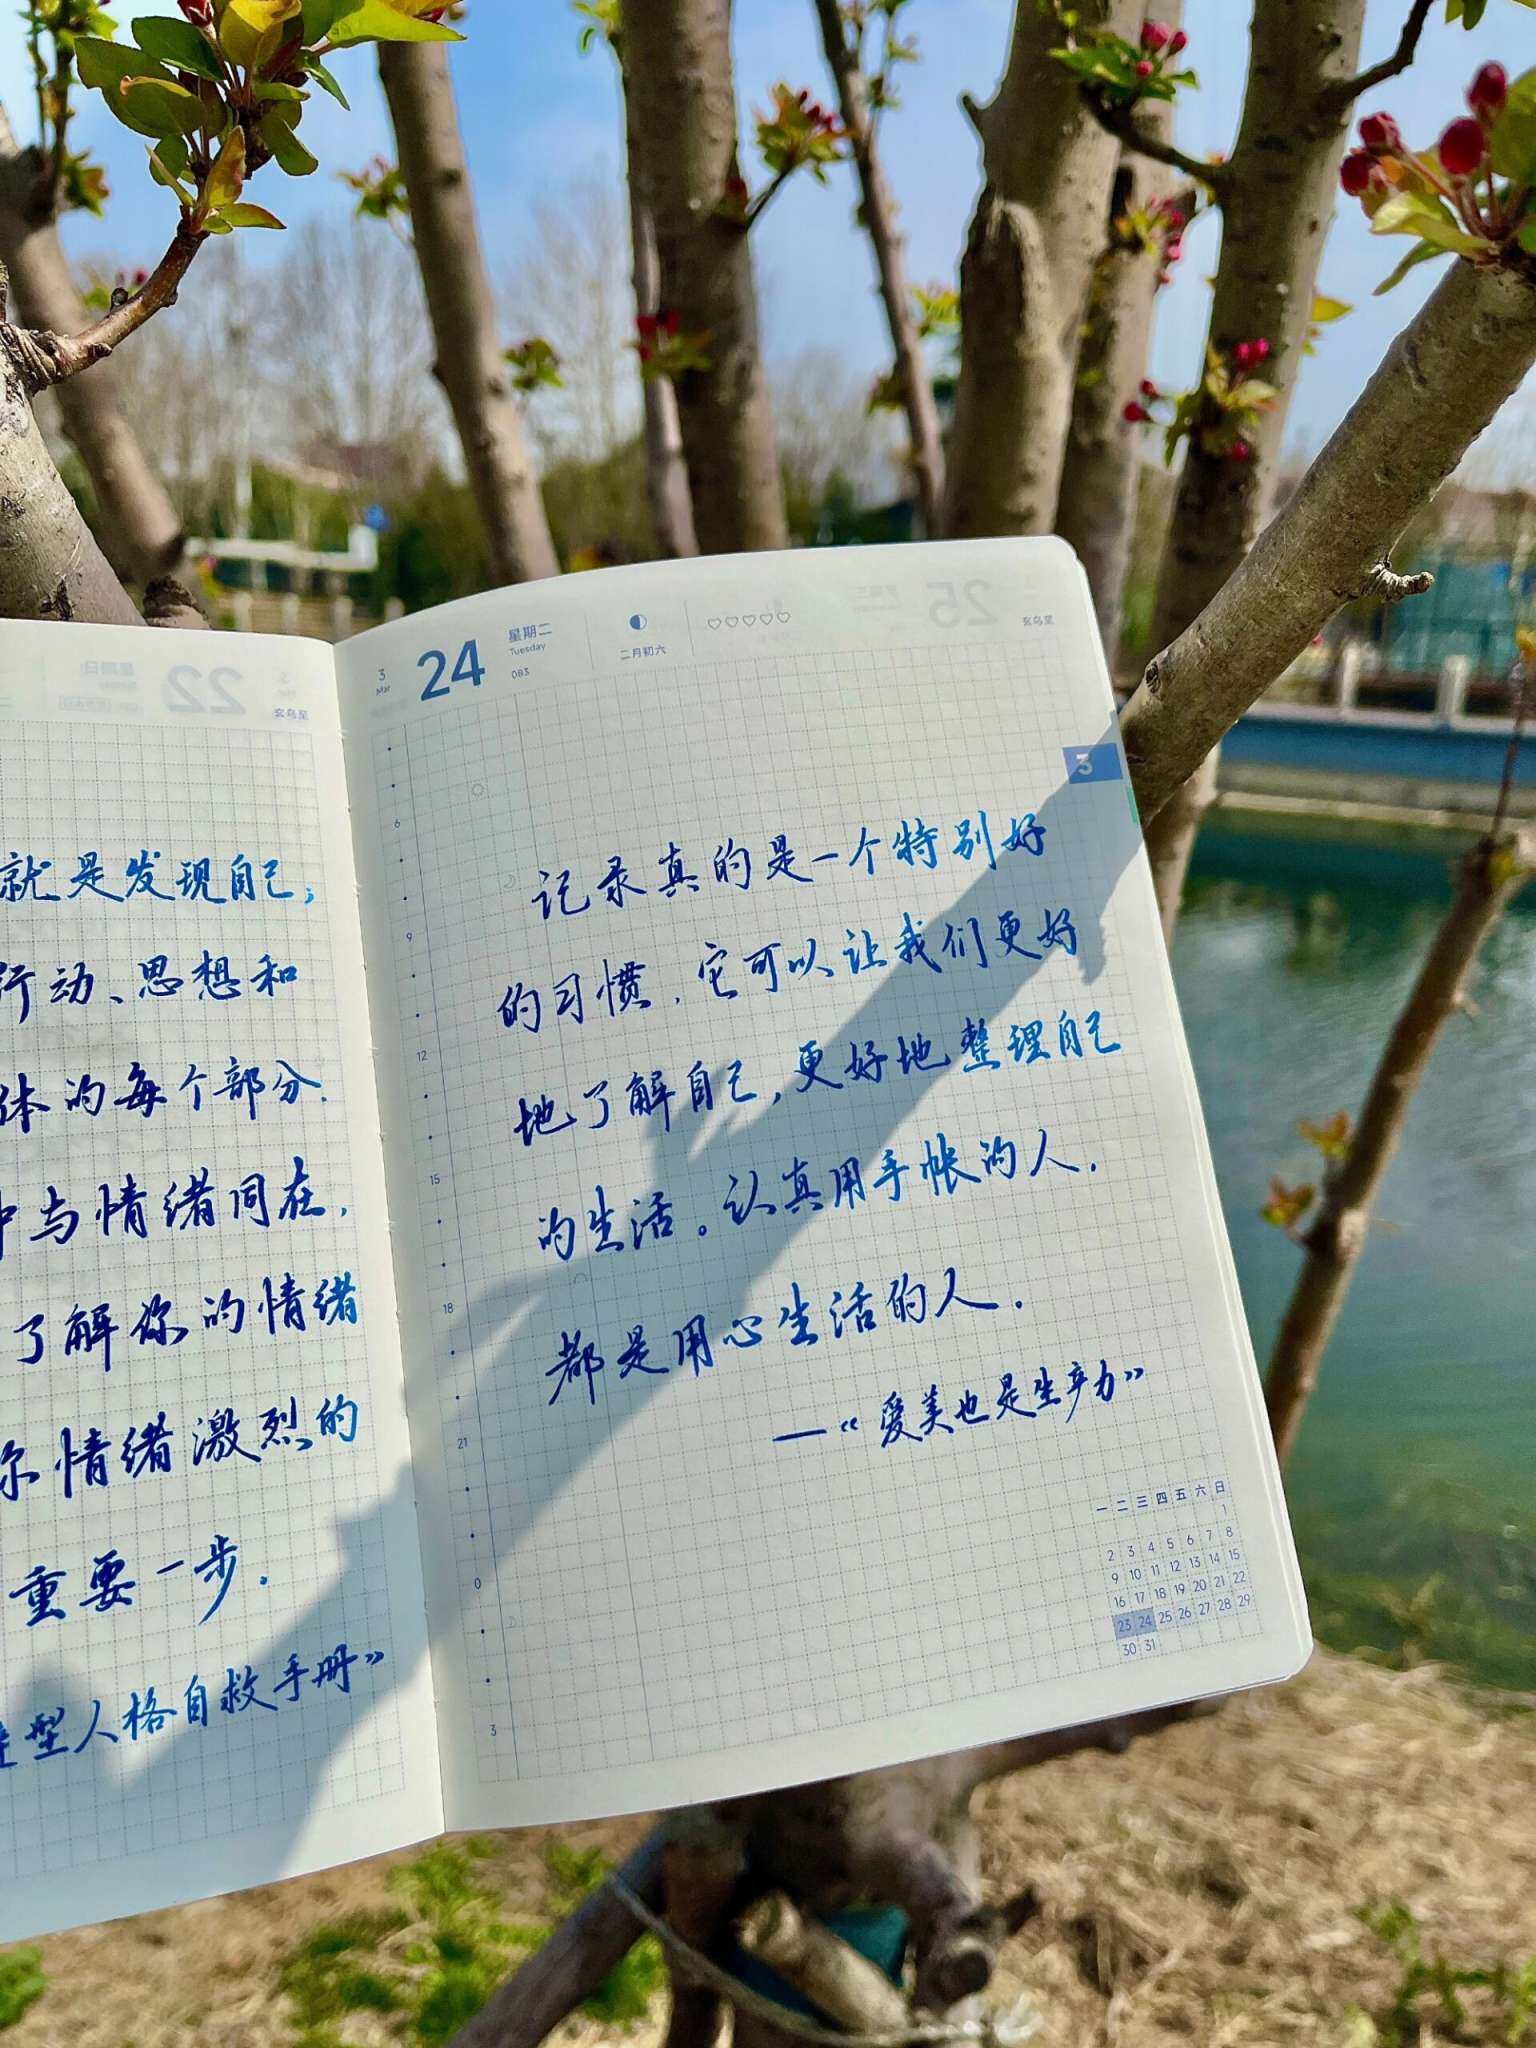 就是发现自己;
行动、思想和
体的每个部分.
中与情绪同在,
了解你的情绪
你情绪激烈的
重要一步.
型人格自救手册》
3
Mar
24
星期二
Tuesday
083
二月初六
玄鸟至
玄鸟至
3
记录真的是一个特别好
的习惯,它可以让我们更好
地了解自己,更好地整理自己
的生活。认真用手帐的人.
都是用心生活的人.
——《爱美也是生产力》
6
9
12
15
18
21
0
3
一 二 三 四 五 六 日
1
2 3 4 5 6 7 8
9 10 11 12 13 14 15
16 17 18 19 20 21 22
23 24 25 26 27 28 29
30 31